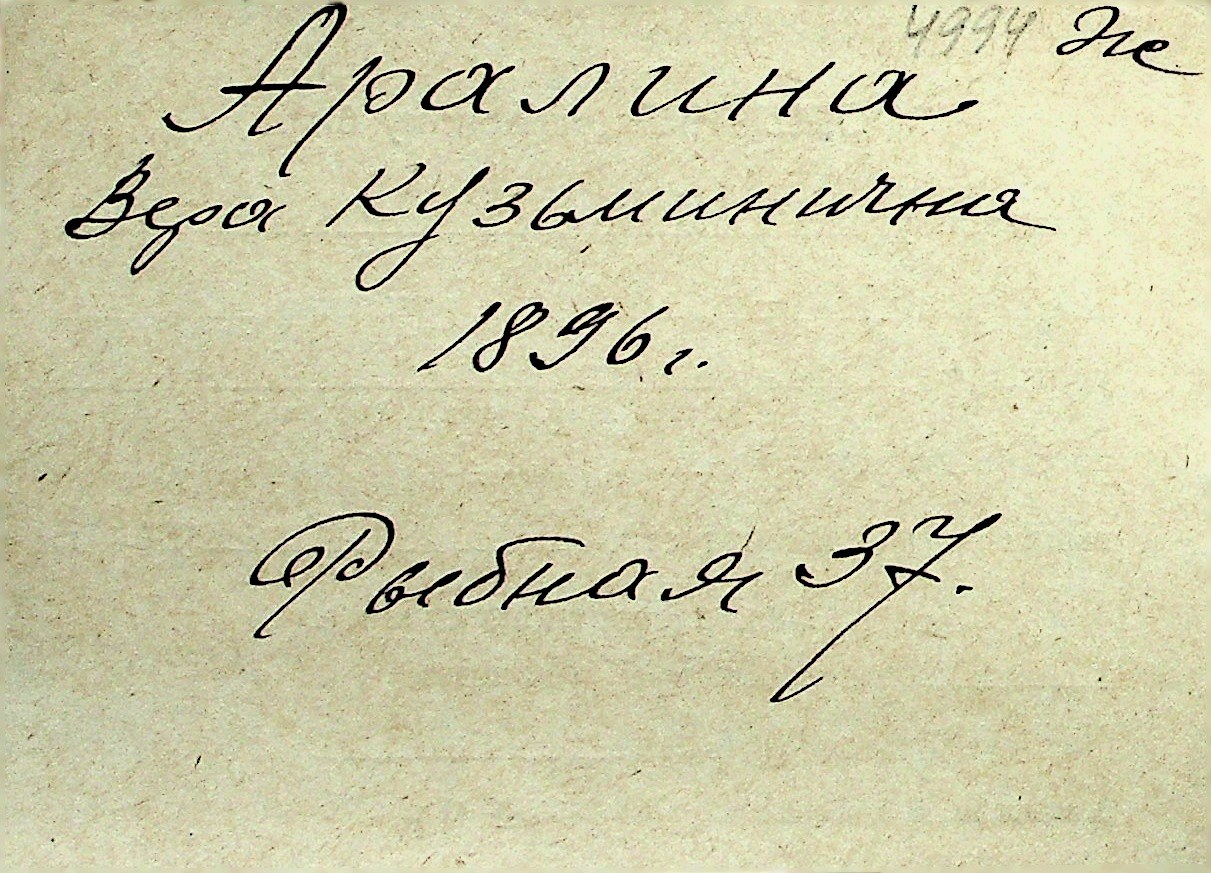 4994 Не
Аралина
Вера Кузьминична
1896 г.
Рыбная 37.